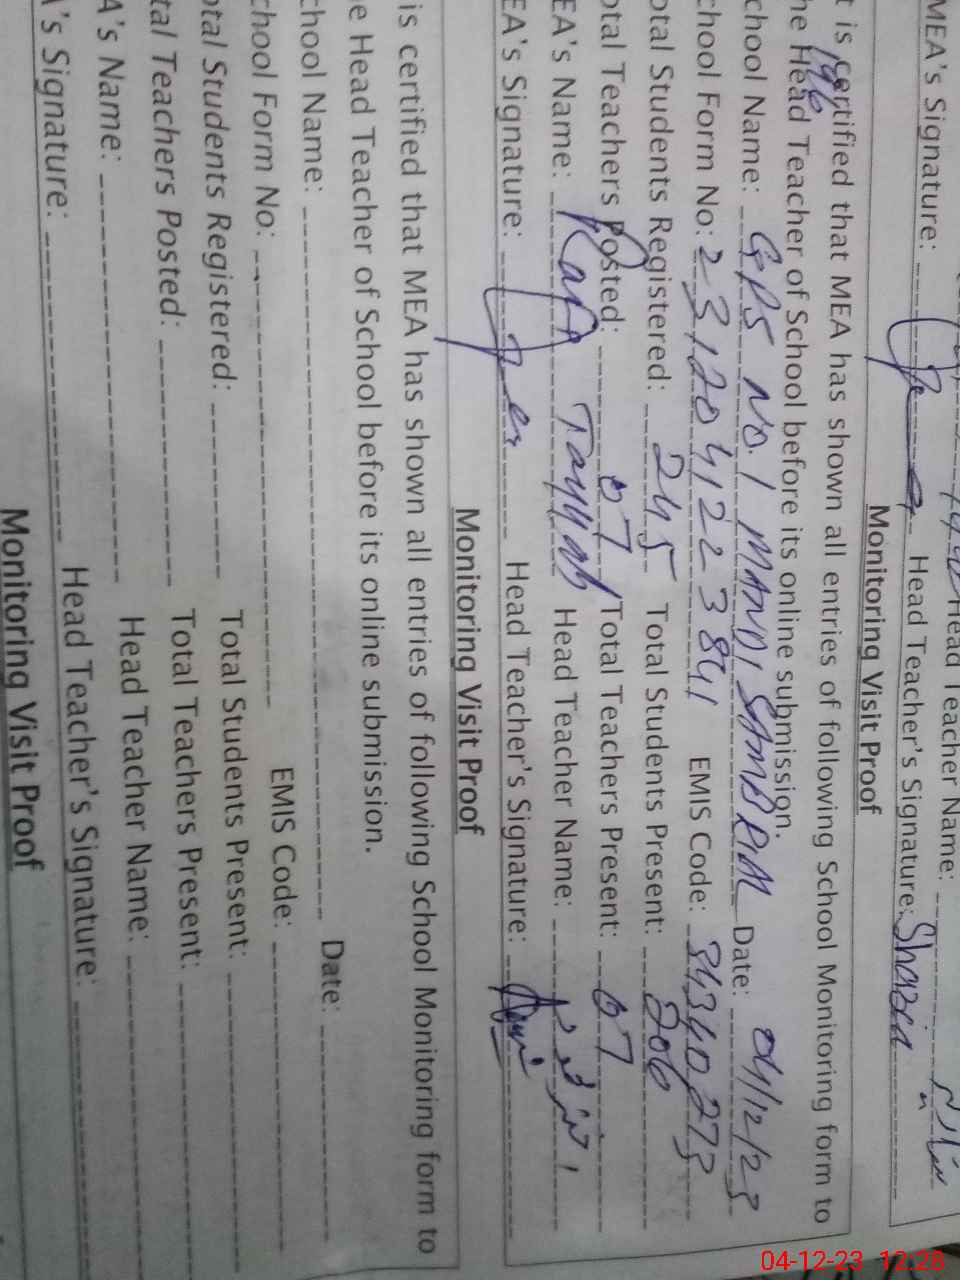 MEA's Signature: Head Teacher's Signature: Shazia
Monitoring Visit Proof
t is certified that MEA has shown all entries of following School Monitoring form to
196
he Head Teacher of School before its online submission.
chool Name: GPS NO. 1 MANDI SAMBRIAL Date: 04/12/23
chool Form No: 2312041223841 EMIS Code: 34340273
otal Students Registered: 245 Total Students Present: 206
otal Teachers Posted: 07 Total Teachers Present: 07
EA's Name: Rafia Tayyab Head Teacher Name:
EA's Signature: Head Teacher's Signature:
Monitoring Visit Proof
is certified that MEA has shown all entries of following School Monitoring form to
e Head Teacher of School before its online submission.
chool Name: Date:
chool Form No: EMIS Code:
otal Students Registered: Total Students Present:
tal Teachers Posted: Total Teachers Present:
A's Name: Head Teacher Name:
A's Signature: Head Teacher's Signature:
Monitoring Visit Proof
04-12-23 12:28